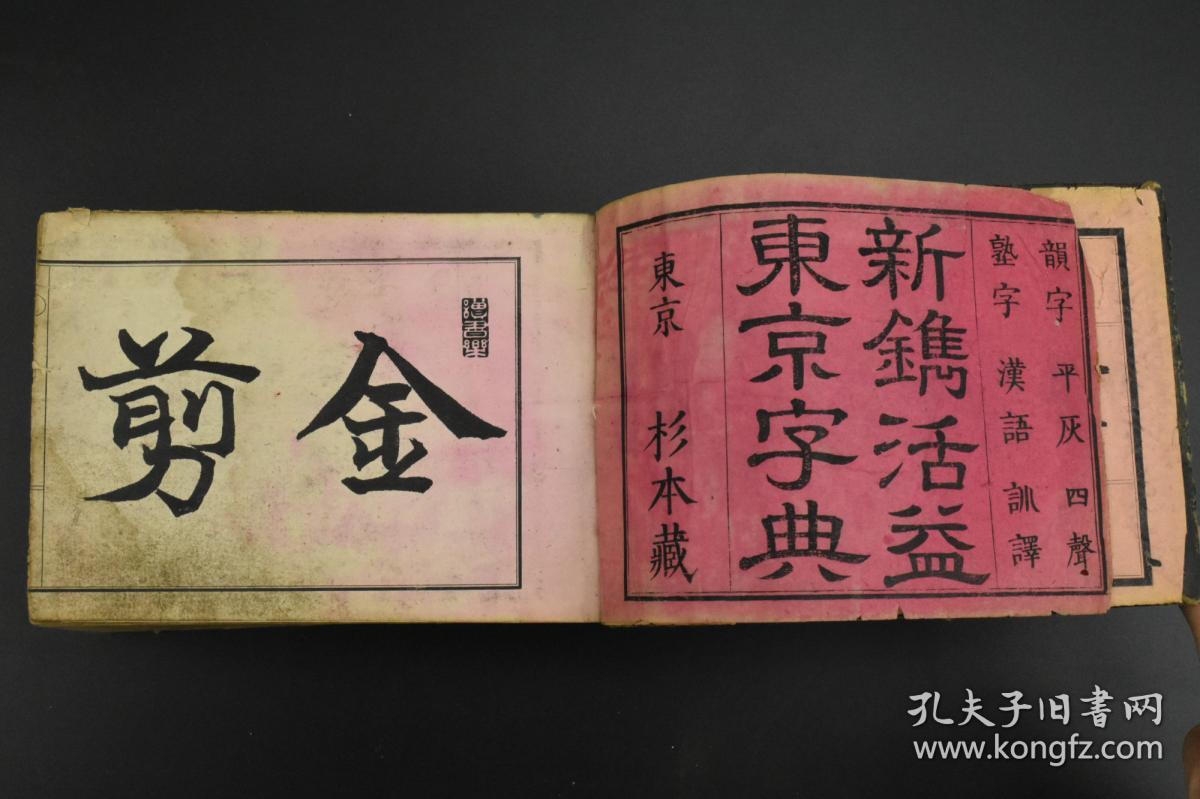 韻字 平灰 四聲
塾字 漢語 訓譯
新鐫活益
東京字典
東京 杉本藏
金剪
孔夫子旧書网
www.kongfz.com